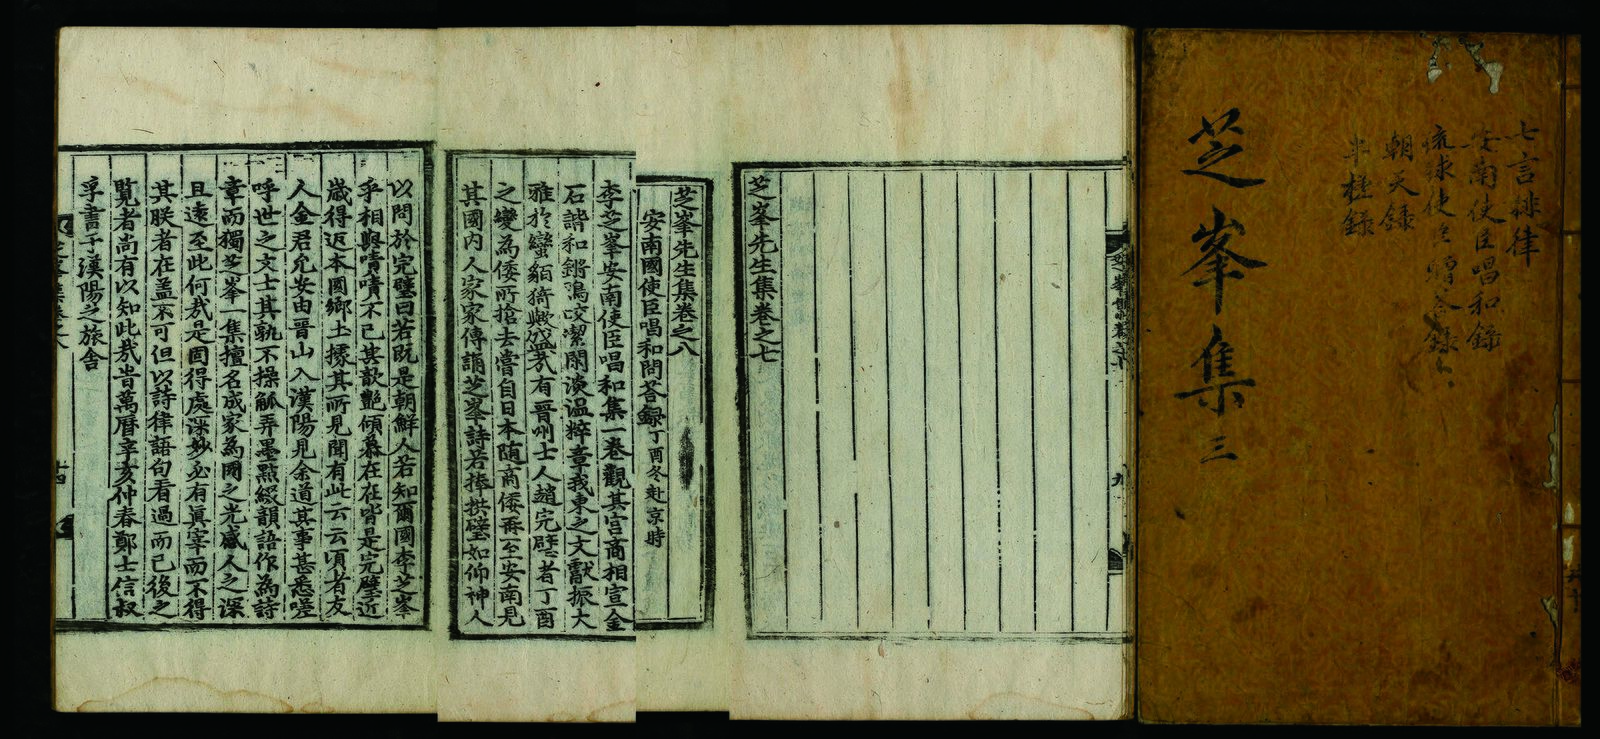 七言排律
安南使臣唱和錄
琉球使臣贈答錄
朝天錄
半槎錄
芝峯集 三
芝峯先生集卷之七
芝峯先生集卷之八
安南國使臣唱和問答録丁酉冬赴京時
李芝峯安南使臣唱和集一卷觀其宮商相宣金
石諧和鏘鳴皎潔閑淡温粹章我東之文獻振大
雅於蠻貊猗歟盛㢤有晋州士人趙完璧者丁酉
之變為倭所搶去嘗自日本随商倭再至安南見
其國内人家家傳誦芝峯詩若捧拱璧如仰神人
以問於完璧曰若既是朝鮮人若知爾國李芝峯
乎相與嘖嘖不已其歆艶傾慕在在皆是完璧近
歲得返本國鄉土擄其所見聞有此云云頃者友
人金君允安由晋山入漢陽見余道其事甚悉嗟
呼世之文士其孰不操觚弄墨點綴韻語作為詩
章而獨芝峯一集擅名成家為國之光感人之深
且遠至此何㢤是固得處深妙必有眞宰而不得
其朕者在盖不可但以詩律語句看過而已後之
覧者尚有以知此㢤旹萬曆辛亥仲春鄭士信叔
孚書于漢陽之旅舍